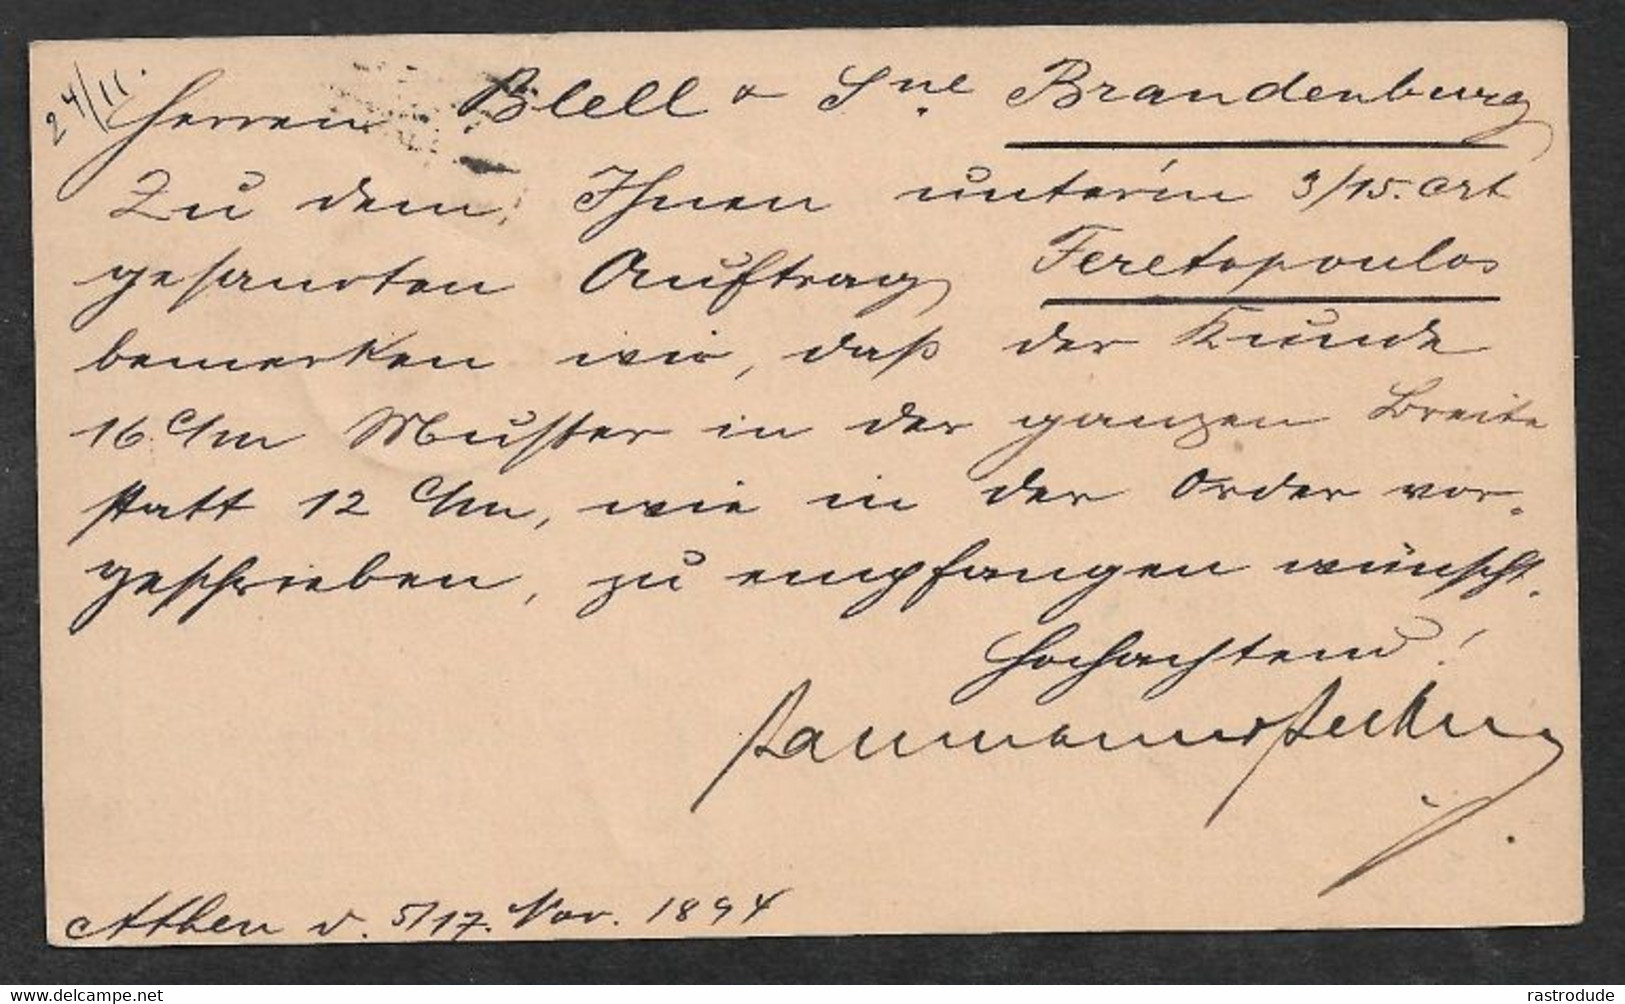 24/11.
Herren Blell & Sne Brandenburg
Zu dem, Ihnen unterm 3/15. crt
gesandten Auftrag Feretopoulos
bemerken wir, daß der Kunde
16 c/m Muster in der ganzen Breite
statt 12 c/m, wie in der Order vor-
geschrieben, zu empfangen wünscht.
Hochachtend!
Athen d. 5/17. Nov. 1894
delcampe.net
rastrodude